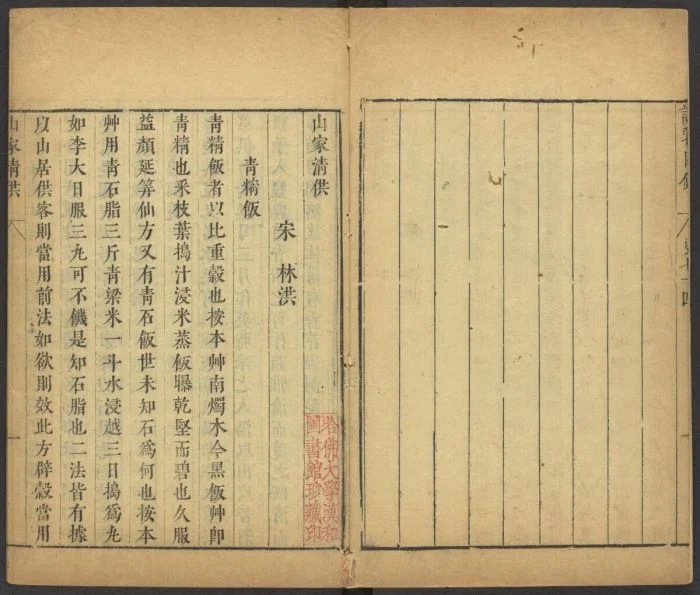 山家清供
哈佛大學漢和
圖書館珍藏印
宋 林洪
青精飯
青精飯者以比重穀也按本艸南燭木今黑飯艸卽
青精也釆枝葉搗汁浸米蒸飯曝乾堅而碧也久服
益顏延筭仙方又有青石飯世未知石爲何也按本
艸用青石脂三斤青梁米一斗水浸越三日搗爲丸
如李大日服三丸可不饑是知石脂也二法皆有據
以山居供客則當用前法如欲則效此方辟穀當用
山家清供 一